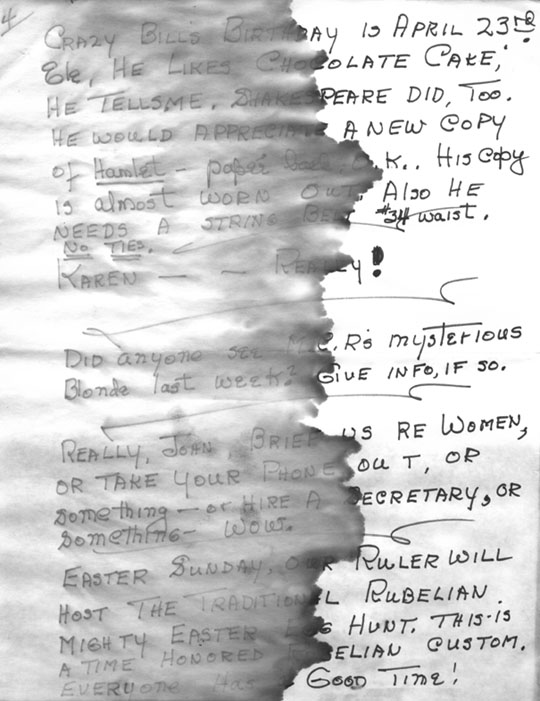 4
CRAZY BILL'S BIRTHDAY IS APRIL 23rd.
Ek, HE LIKES CHOCOLATE CAKE,
HE TELLSME. SHAKESPEARE DID, TOO.
HE WOULD APPRECIATE A NEW COPY
of Hamlet - paper back, O.K.. HIS COPY
is almost WORN OUT. Also HE
NEEDS A STRING BELT #34 waist.
No TIES.
KAREN — - REALLY!
DID anyone see M.C.R's mysterious
Blonde last week? GIVE INFO, IF SO.
REALLY, JOHN, BRIEF US RE WOMEN,
OR TAKE YOUR PHONE OUT, OR
something — or HIRE A SECRETARY, OR
something - WOW.
EASTER SUNDAY, OUR RULER WILL
HOST THE TRADITIONAL RUBELIAN
MIGHTY EASTER EGG HUNT. THIS IS
A TIME HONORED RUBELIAN CUSTOM.
EVERYONE Has A GOOD TIME!